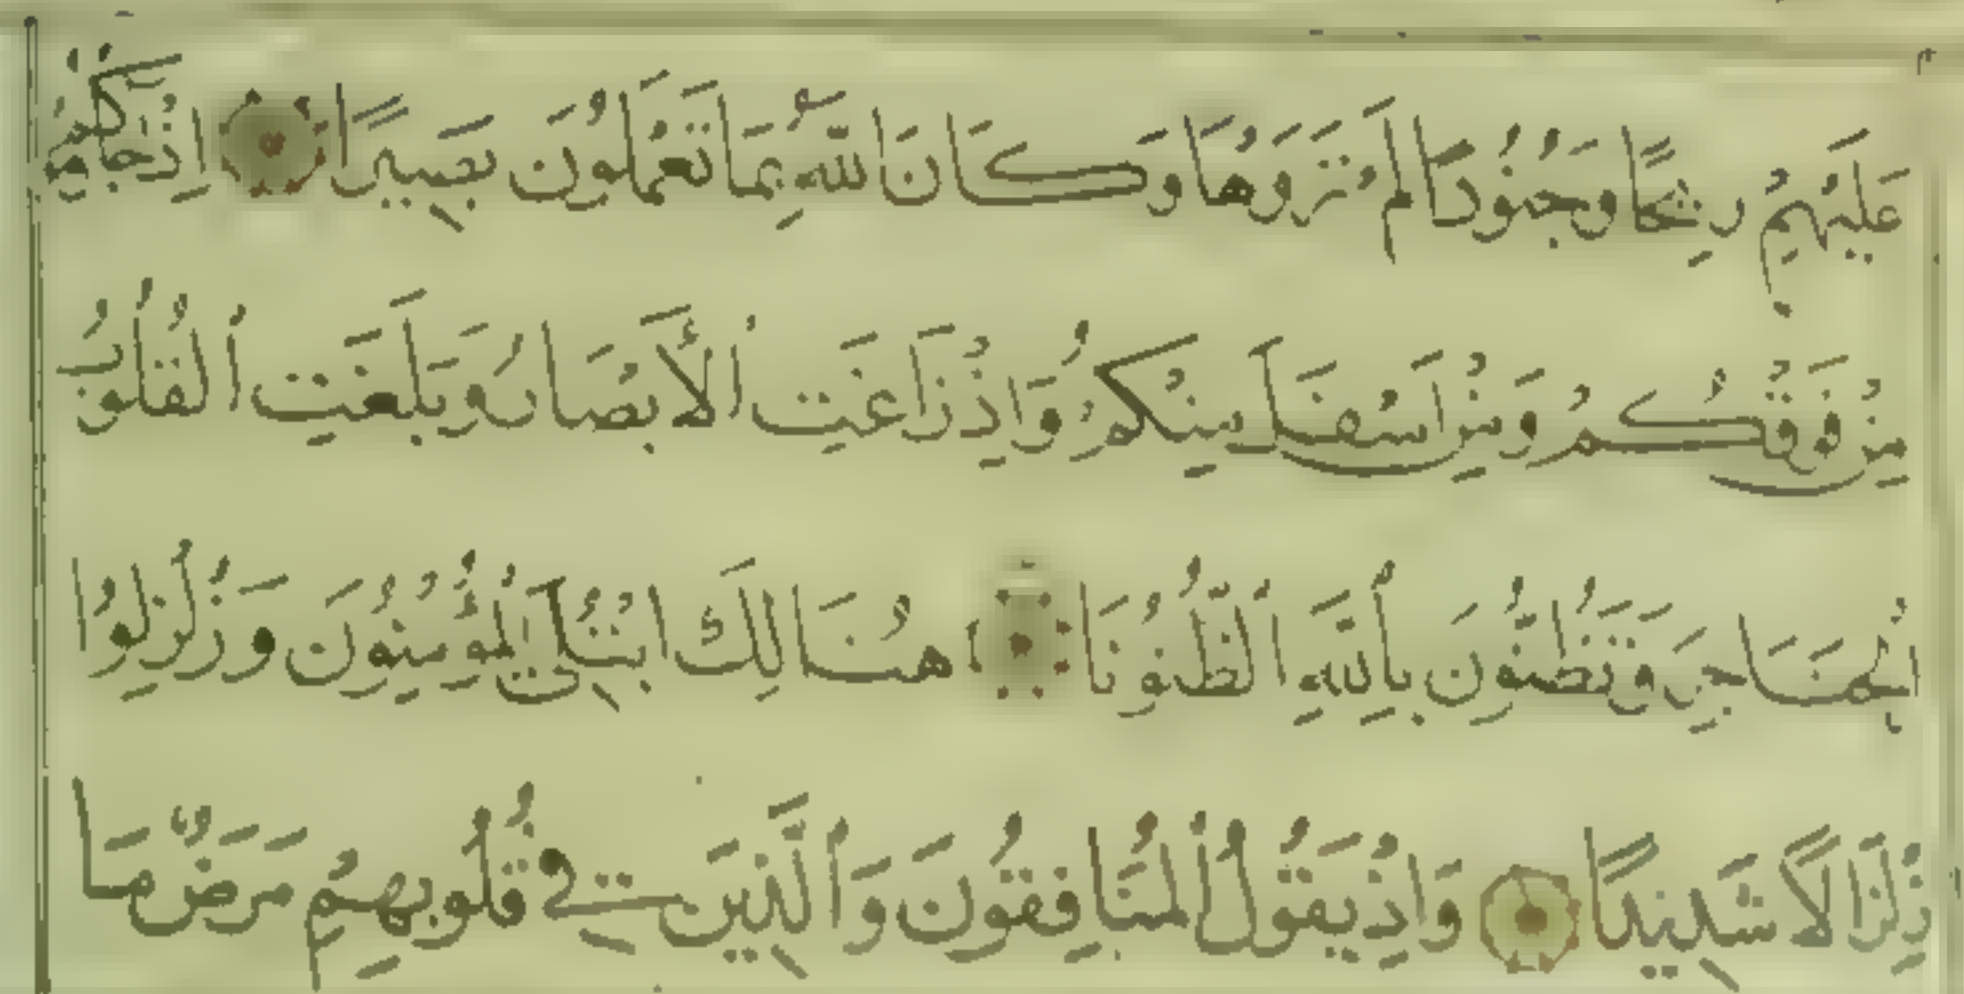 عَلَيْهِمْ رِيْحًا وَجُنُوْدًا لَمْ تَرَوْهَا وَكَانَ اللّٰهُ بِمَا تَعْمَلُوْنَ بَصِيْرًا اِذْ جَاؤُكُمْ
مِنْ فَوْقِكُمْ وَمِنْ اَسْفَلَ مِنْكُمْ وَاِذْ زَاغَتِ الْاَبْصَارُ وَبَلَغَتِ الْقُلُوْبُ
الْحَنَاجِرَ وَتَظُنُّوْنَ بِاللّٰهِ الظُّنُوْنَا هُنَالِكَ ابْتُلِيَ الْمُؤْمِنُوْنَ وَزُلْزِلُوْا
زِلْزَالًا شَدِيْدًا وَاِذْ يَقُوْلُ الْمُنَافِقُوْنَ وَالَّذِيْنَ فِيْ قُلُوْبِهِمْ مَرَضٌ مَا